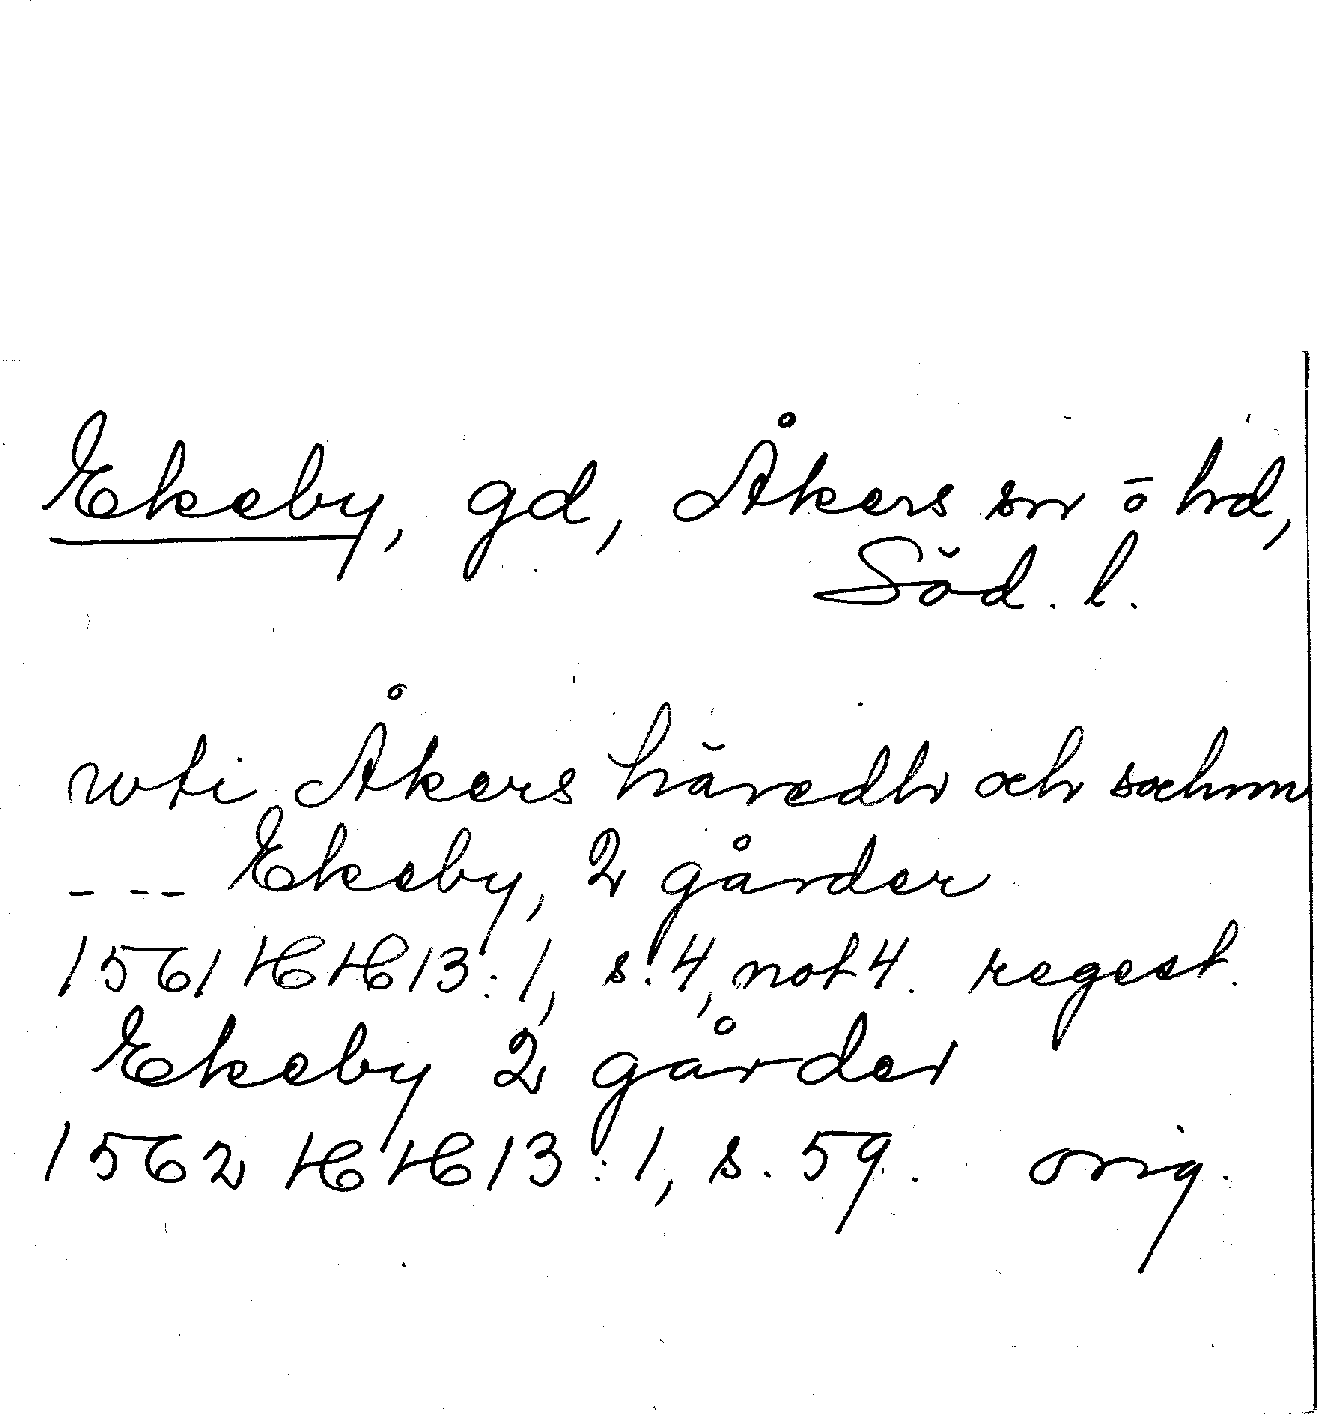 Ekeby, gd, Åkers sn o hd,
Söd. l.
wti Åkers häredh och sochnn
- -- Ekeby, 2 gårder
1561 HH 13:1, s. 4, not 4. regest.
Ekeby 2 gårder
1562 HH 13:1, s. 59. orig.